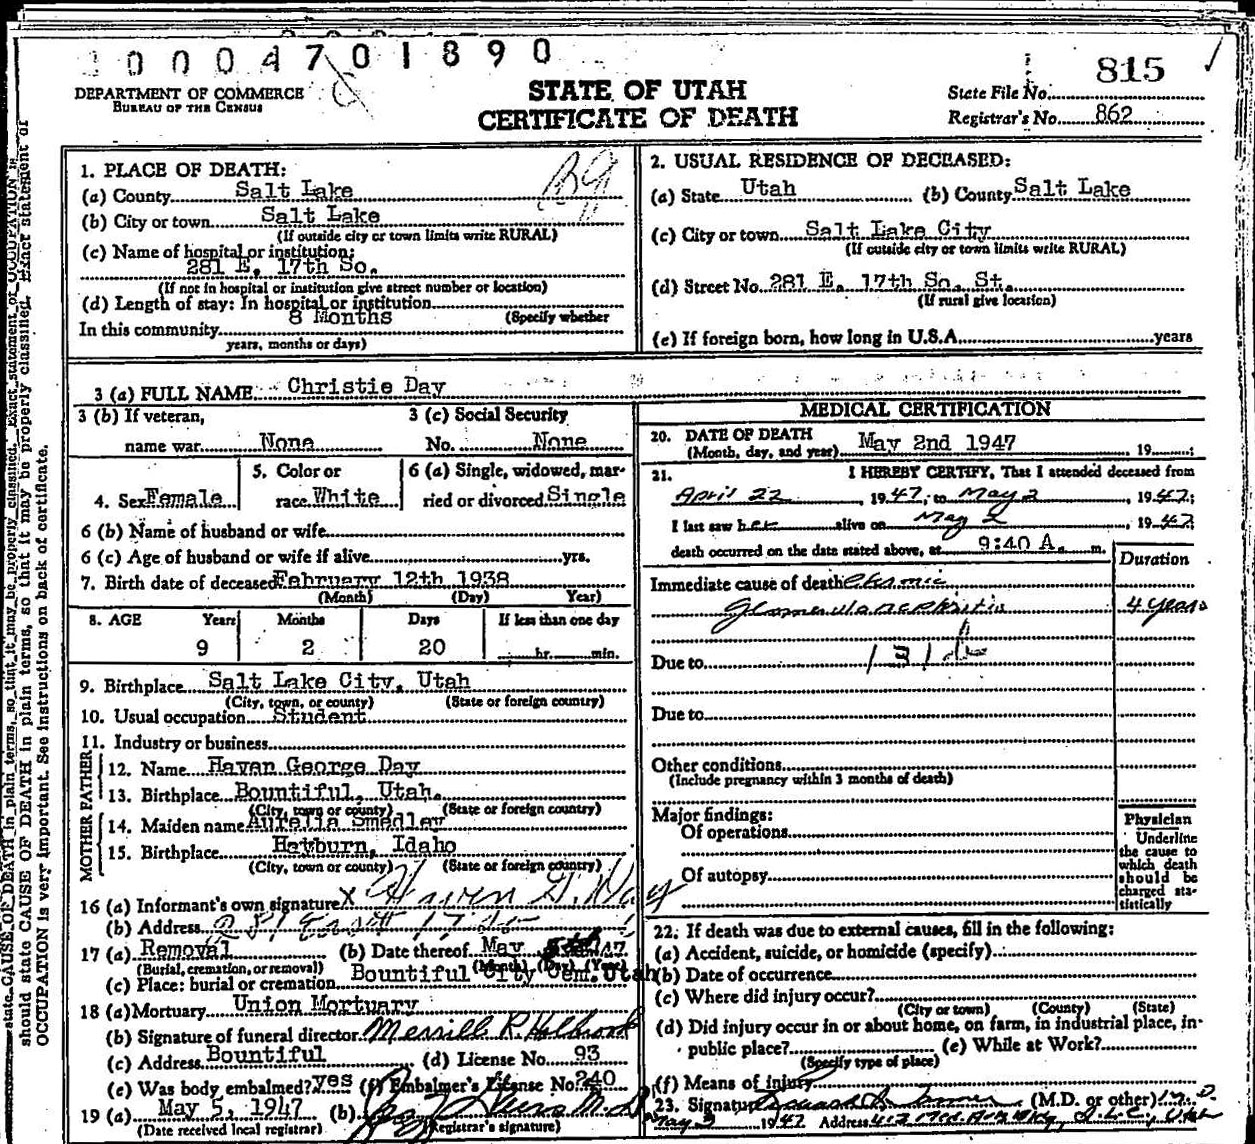 0 0 0 4 7 0 1 8 9 0
815
DEPARTMENT OF COMMERCE
BUREAU OF THE CENSUS
STATE OF UTAH
CERTIFICATE OF DEATH
State File No.
Registrar's No. 862
1. PLACE OF DEATH:
(a) County Salt Lake
(b) City or town Salt Lake
(If outside city or town limits write RURAL)
(c) Name of hospital or institution:
281 E. 17th So.
(If not in hospital or institution give street number or location)
(d) Length of stay: In hospital or institution
8 Months (Specify whether
In this community
years, months or days)
2. USUAL RESIDENCE OF DECEASED:
(a) State Utah (b) County Salt Lake
(c) City or town Salt Lake City
(If outside city or town limits write RURAL)
(d) Street No. 281 E. 17th So. St.
(If rural give location)
(e) If foreign born, how long in U.S.A. years
3 (a) FULL NAME Christie Day
3 (b) If veteran, 3 (c) Social Security
name war None No. None
4. Sex Female
5. Color or
race White
6 (a) Single, widowed, mar-
ried or divorced Single
6 (b) Name of husband or wife
6 (c) Age of husband or wife if alive yrs.
7. Birth date of deceased February 12th 1938
(Month) (Day) Year)
8. AGE Years Months Days If less than one day
9 2 20 hr. min.
9. Birthplace Salt Lake City, Utah
(City, town, or county) (State or foreign country)
10. Usual occupation Student
11. Industry or business
FATHER
12. Name Haven George Day
13. Birthplace Bountiful, Utah.
(City, town or county) (State or foreign country)
MOTHER
14. Maiden name Aurelia Smedley
15. Birthplace Heyburn, Idaho
(City, town or county) (State or foreign country)
16 (a) Informant's own signature X Haven G. Day
(b) Address 281 East 17 So
17 (a) Removal (b) Date thereof May 5th 47
(Burial, cremation, or removal) (Month) (Day) (Year)
(c) Place: burial or cremation Bountiful City Cem. Utah
18 (a) Mortuary Union Mortuary
(b) Signature of funeral director Merrill R. Holbrook
(c) Address Bountiful (d) License No. 93
(e) Was body embalmed? yes (f) Embalmer's License No. 240
19 (a) May 5, 1947 (b)
(Date received local registrar) (Registrar's signature)
MEDICAL CERTIFICATION
20. DATE OF DEATH
(Month, day, and year) May 2nd 1947 19 ;
21. I HEREBY CERTIFY, That I attended deceased from
April 22 1947, to May 2, 1947;
I last saw her alive on May 2, 1947
death occurred on the date stated above, at 9:40 A. m.
Duration
Immediate cause of death Chronic
Glomerulonephritis 4 years
Due to 131b
Due to
Other conditions
(Include pregnancy within 3 months of death)
Major findings:
Of operations
Of autopsy
Physician
Underline
the cause to
which death
should be
charged sta-
tistically
22. If death was due to external causes, fill in the following:
(a) Accident, suicide, or homicide (specify)
(b) Date of occurrence
(c) Where did injury occur?
(City or town) (County) (State)
(d) Did injury occur in or about home, on farm, in industrial place, in
public place? (e) While at Work?
(Specify type of place)
(f) Means of injury
23. Signature (M.D. or other) M.D.
May 3 1947 Address 413 Med. Arts Bldg, S.L.C., Utah
state CAUSE OF DEATH in plain terms, so that it may be properly classified. Exact statement of OCCUPATION is
should state CAUSE OF DEATH in plain terms, so that it may be properly classified. Exact statement of
OCCUPATION is very important. See instructions on back of certificate.